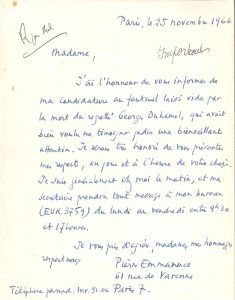 Paris, le 25 novembre 1966
Madame,
J'ai l'honneur de vous informer de
ma candidature au fauteuil laissé vide par
la mort du regretté George Duhamel, qui avait
bien voulu me témoigner jadis une bienveillante
attention. Je serais très honoré de vous présenter
mes respects, au jour et à l'heure de votre choix.
Je suis généralement chez moi le matin, et ma
secrétaire prendra tout message à mon bureau
(EUR.3759) du lundi au vendredi entre 9h30
et 17 heures.
Je vous prie d'agréer, madame, mes hommages
respectueux
Pierre Emmanuel
61 rue de Varenne
Paris 7.
Téléphone personnel: Inv. 91.02